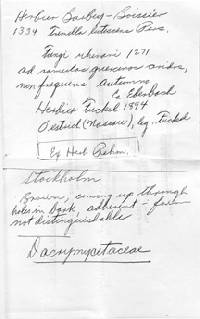 Herbier Barbey-Boissier
1334 Tremella lutescens Pers.
Fungi rhenani 1271
ad ramulos quercinos aridos,
non frequens autumno
Ca Eberbach
Herbier Fuckel 1894
Oestrich (Nassau), leg. Fuckel
Ex Herb Rehm.
Stockholm
Brown, coming up through
holes in bark, adherent - form
not distinguishable
Dacrymycetaceae